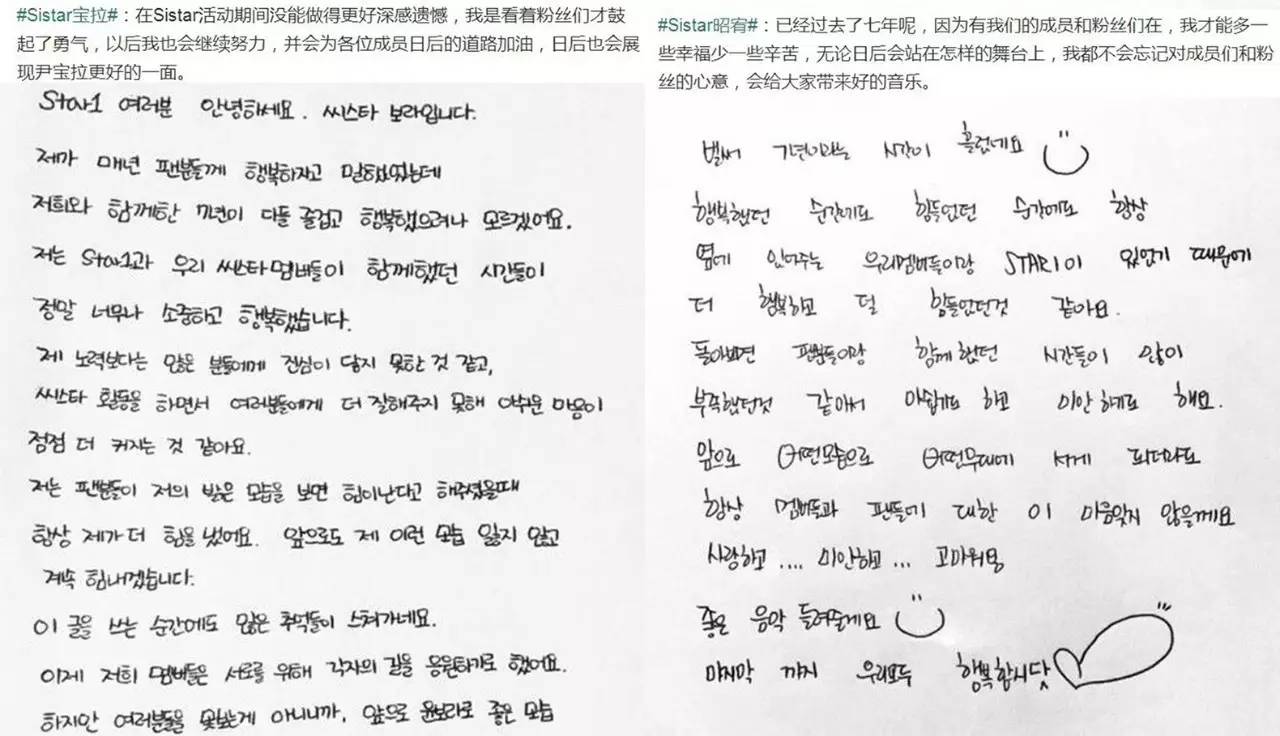 #Sistar宝拉#：在Sistar活动期间没能做得更好深感遗憾，我是看着粉丝们才鼓
起了勇气，以后我也会继续努力，并会为各位成员日后的道路加油，日后也会展
现尹宝拉更好的一面。
Star1 여러분 안녕하세요. 씨스타 보라입니다.
제가 매년 팬분들께 행복하자고 말했었는데
저희와 함께한 7년이 다들 즐겁고 행복했으려나 모르겠어요.
저는 Star1과 우리 씨스타멤버들이 함께했던 시간들이
정말 너무나 소중하고 행복했습니다.
제 노력보다는 많은 분들에게 진심이 닿지 못한 것 같고,
씨스타 활동을 하면서 여러분들에게 더 잘해주지 못해 아쉬운 마음이
점점 더 커지는 것 같아요.
저는 팬분들이 저의 밝은 모습을 보면 힘이난다고 해주셨을때
항상 제가 더 힘을 냈어요. 앞으로도 제 이런 모습 잃지 않고
계속 힘내겠습니다.
이 글을 쓰는 순간에도 많은 추억들이 스쳐가네요.
이제 저희 멤버들은 서로를 위해 각자의 길을 응원하기로 했어요.
하지만 여러분들을 못보는게 아니니까, 앞으로 윤보라로 좋은 모습
#Sistar昭宥#：已经过去了七年呢，因为有我们的成员和粉丝们在，我才能多一
些幸福少一些辛苦，无论日后会站在怎样的舞台上，我都不会忘记对成员们和粉
丝的心意，会给大家带来好的音乐。
벌써 7년이라는 시간이 흘렀네요
행복했던 순간에도 힘들었던 순간에도 항상
옆에 있어주는 우리멤버들이랑 STAR1이 있었기 때문에
더 행복하고 덜 힘들었던것 같아요.
돌아보면 팬분들이랑 함께했던 시간들이 많이
부족했던것 같아서 아쉽기도 하고 미안하기도 해요.
앞으로 어떤모습으로 어떤무대에 서게 되더라도
항상 멤버들과 팬들에 대한 이 마음잊지 않을께요
사랑하고 .... 미안하고 ... 고마워용
좋은 음악 들려줄게요
마지막 까지 우리모두 행복합시닷